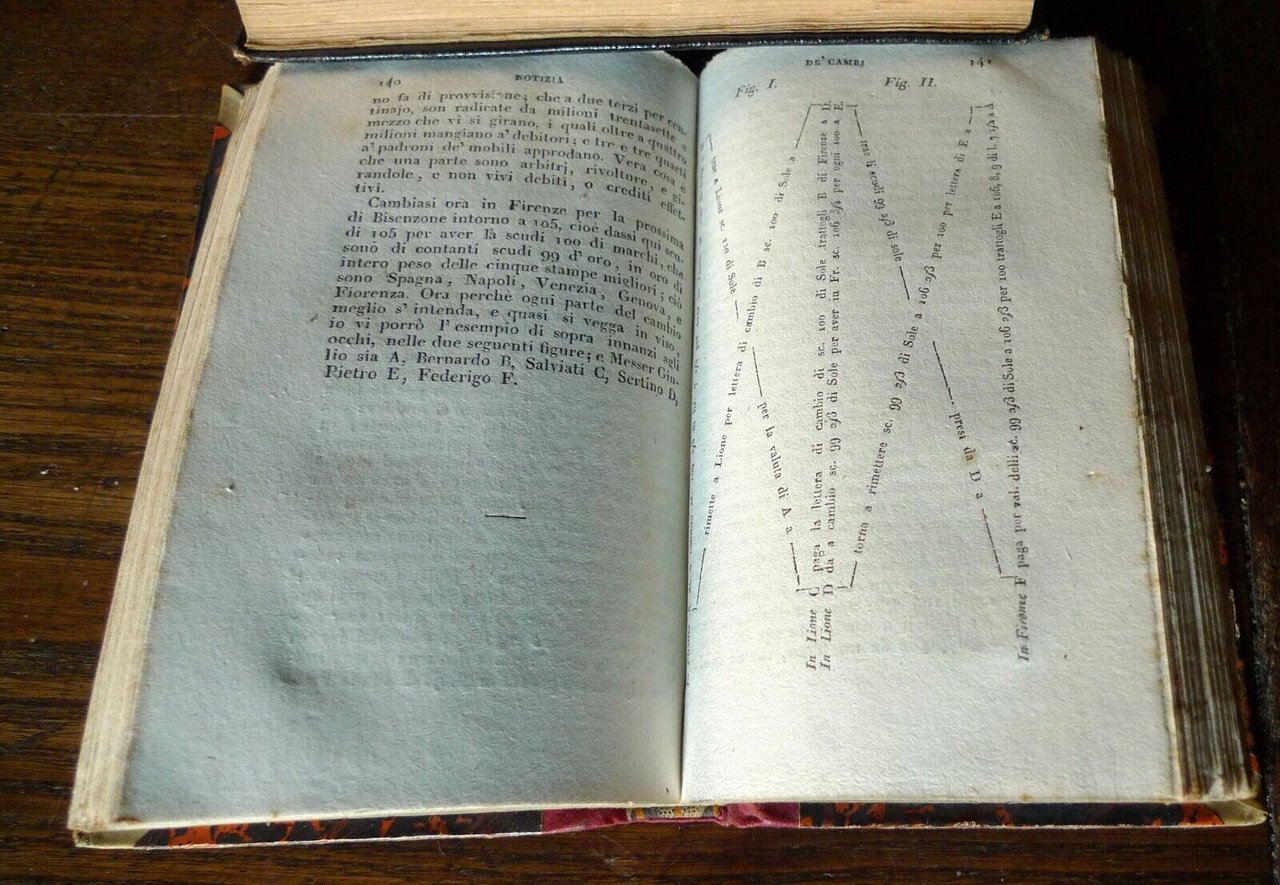 140
NOTIZIA
no fa di provvisione; che a due terzi per cen-
tinajo, son radicate da milioni trentasette e
mezzo che vi si girano, i quali oltre a quattro
milioni mangiano a' debitori; e tre e tre quarti
a' padroni de' mobili approdano. Vera cosa è
che una parte sono arbitrj, rivolture, e gi-
randole, e non vivi debiti, o crediti effet-
tivi.
Cambiasi ora in Firenze per la prossima
di Bisenzone intorno a 105, cioè dassi qui scu-
di 105 per aver là scudi 100 di marchi, che
sono di contanti scudi 99 d'oro, in oro di
intero peso delle cinque stampe migliori; ciò
sono Spagna, Napoli, Venezia, Genova, e
Fiorenza. Ora perchè ogni parte del cambio
meglio s'intenda, e quasi si vegga in viso,
io vi porrò l'esempio di sopra innanzi agli
occhi, nelle due seguenti figure; e Messer Giu-
lio sia A, Bernardo B, Salviati C, Sertino D,
Pietro E, Federigo F.
DE' CAMBJ
141
Fig. I.
Fig. II.
rimette a Lione per lettera di cambio di B sc. 100 di Sole a
per la valuta di A a
In Lione C paga la lettera di cambio di sc. 100 di Sole trattogli B di Firenze a D
In Lione D dà a cambio sc. 99 2/3 di Sole per aver in Fr. sc. 106 3/4 per ogni 100 a E
torno a rimettere sc. 99 2/3 di Sole a 106 2/3 per 100 per lettera di E a
trae li scudi 99 2/3 di sole presi da D a
In Firenze F paga per val. delli sc. 99 2/3 di Sole a 106 2/3 per 100 trattogli E a 106, 8, 9 di l. 7 1/2 a A